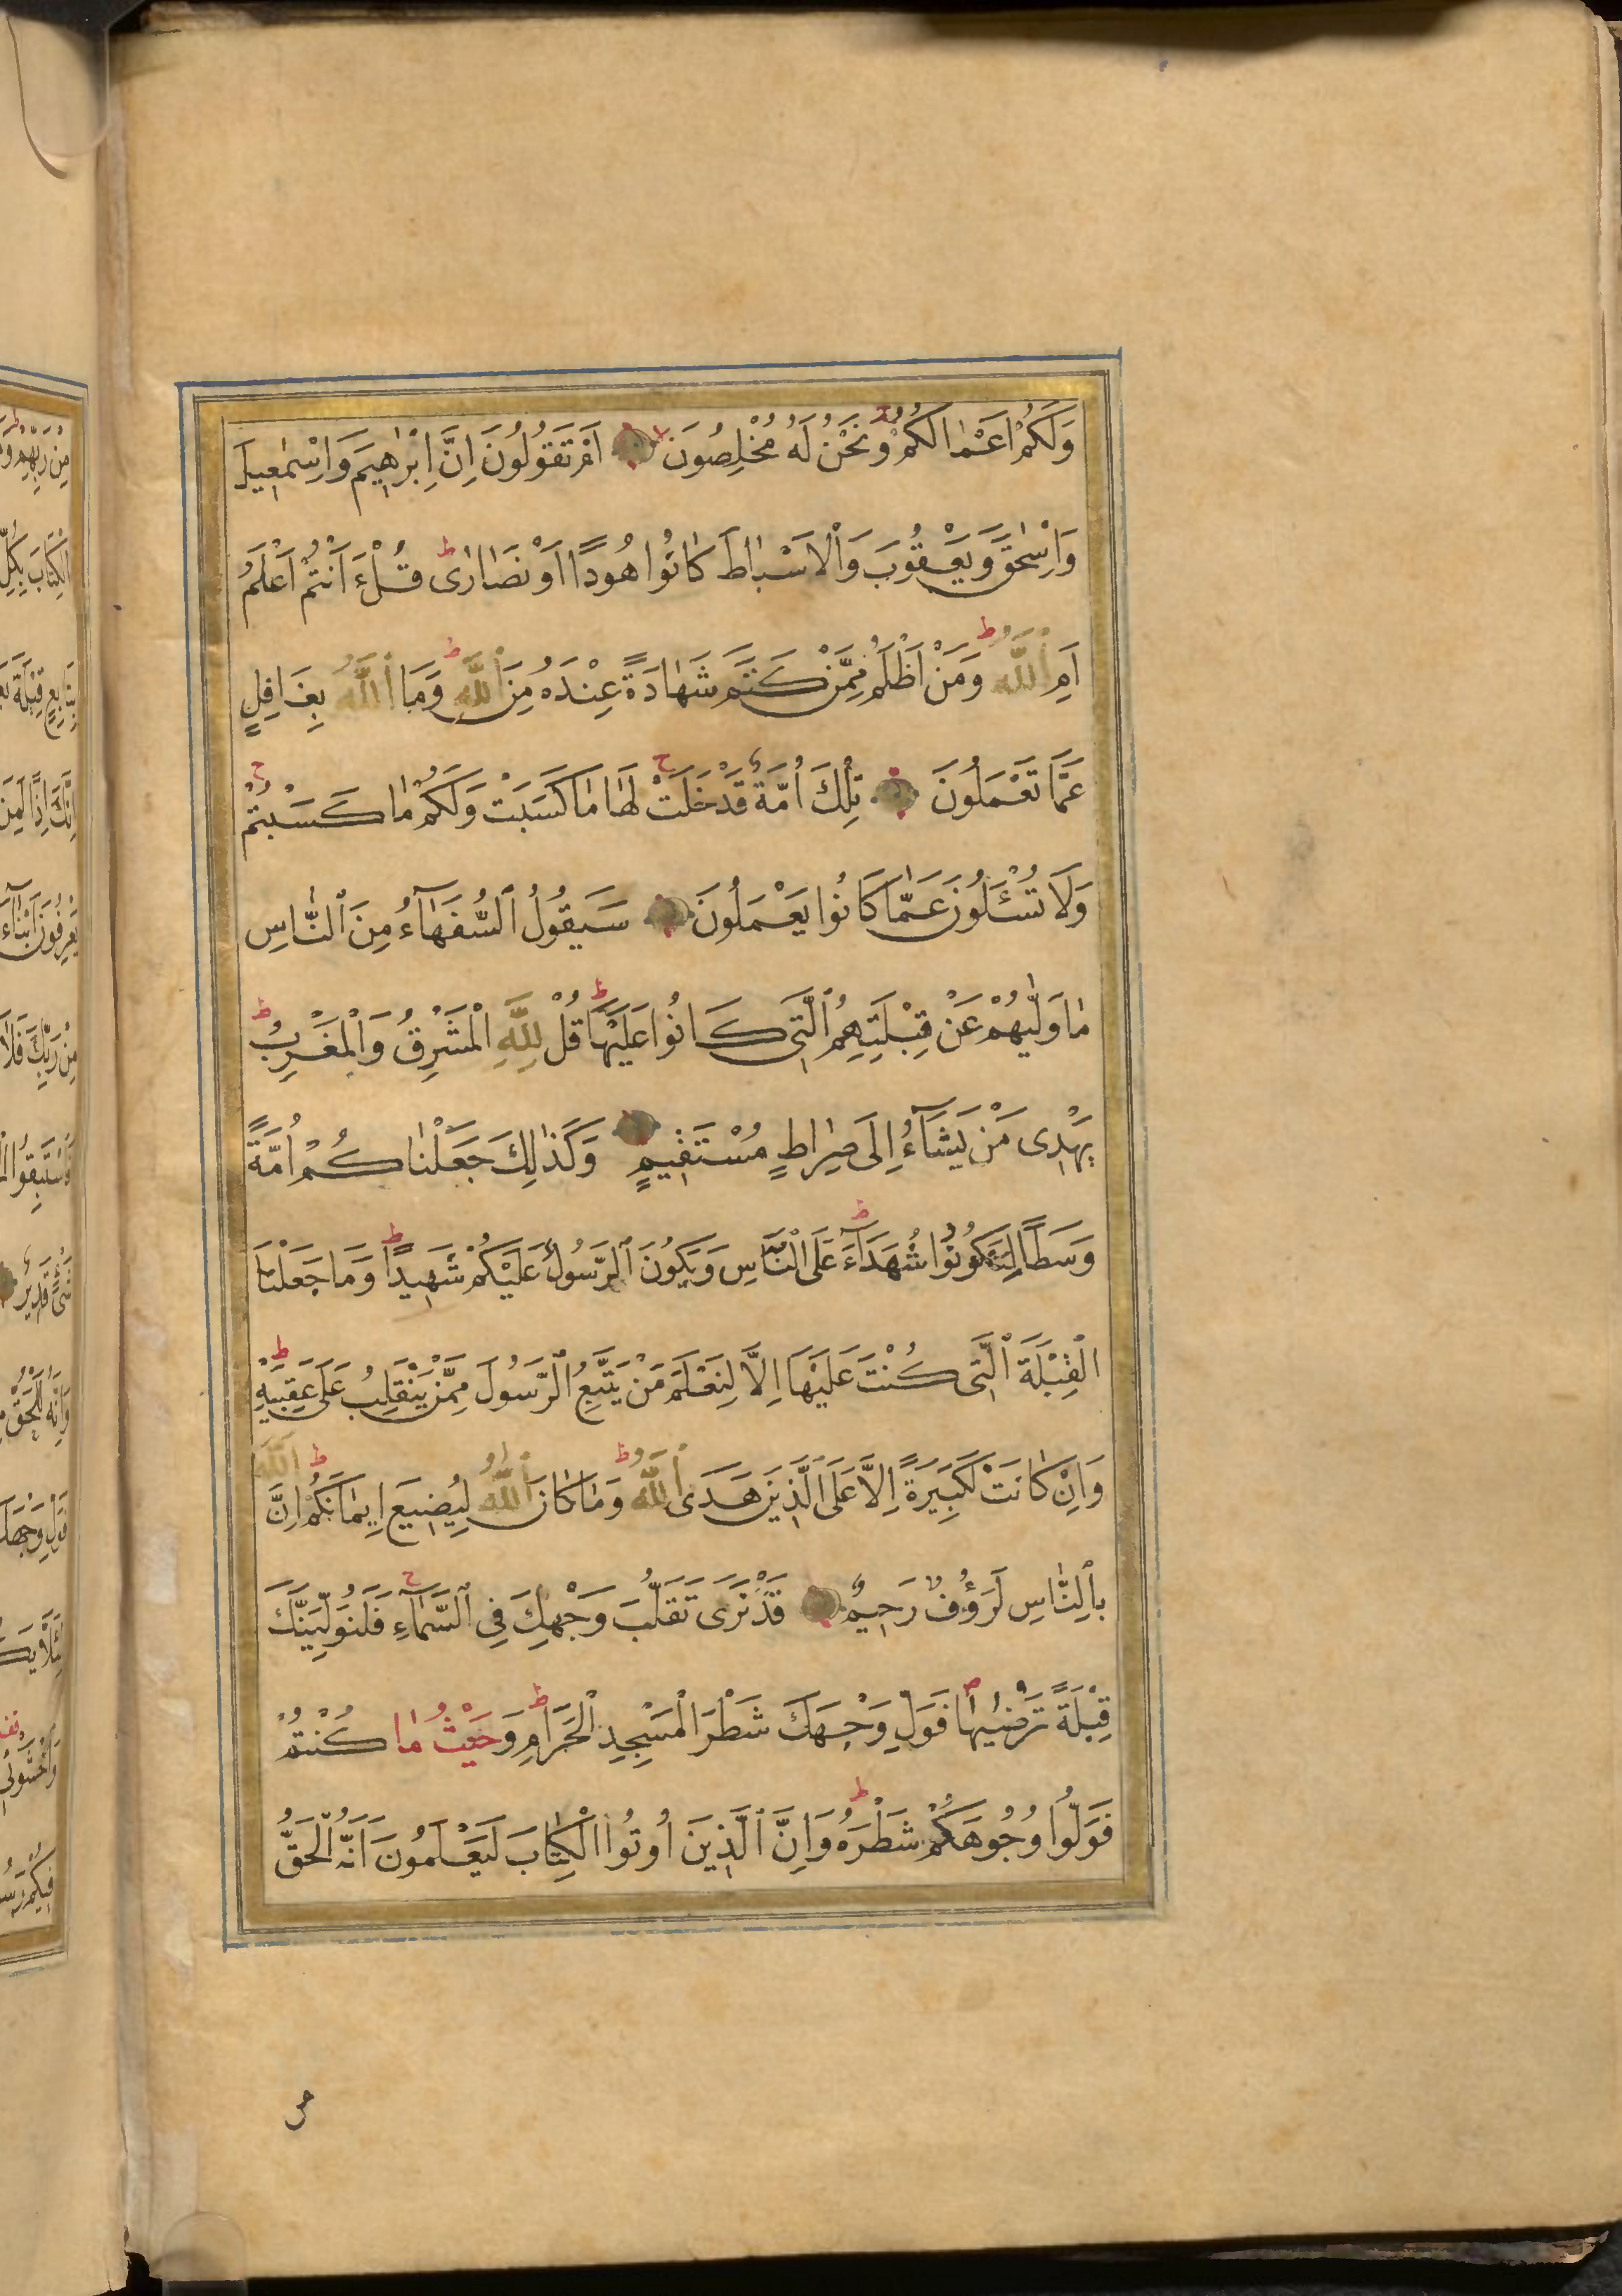 وَلَكُمْ اَعْمَالُكُمْ وَنَحْنُ لَهُ مُخْلِصُونَ اَمْ تَقُولُونَ اِنَّ اِبْرٰهِيمَ وَاِسْمٰعِيلَ
وَاِسْحٰقَ وَيَعْقُوبَ وَالْاَسْبَاطَ كَانُوا هُودًا اَوْ نَصَارٰى قُلْ ءَاَنْتُمْ اَعْلَمُ
اَمِ اللّٰهُ وَمَنْ اَظْلَمُ مِمَّنْ كَتَمَ شَهَادَةً عِنْدَهُ مِنَ اللّٰهِ وَمَا اللّٰهُ بِغَافِلٍ
عَمَّا تَعْمَلُونَ تِلْكَ اُمَّةٌ قَدْ خَلَتْ لَهَا مَا كَسَبَتْ وَلَكُمْ مَا كَسَبْتُمْ
وَلَا تُسْئَلُونَ عَمَّا كَانُوا يَعْمَلُونَ سَيَقُولُ السُّفَهَآءُ مِنَ النَّاسِ
مَا وَلّٰيهُمْ عَنْ قِبْلَتِهِمُ الَّتِى كَانُوا عَلَيْهَا قُلْ لِلّٰهِ الْمَشْرِقُ وَالْمَغْرِبُ
يَهْدِى مَنْ يَشَآءُ اِلَى صِرَاطٍ مُسْتَقِيمٍ وَكَذٰلِكَ جَعَلْنَاكُمْ اُمَّةً
وَسَطًا لِتَكُونُوا شُهَدَآءَ عَلَى النَّاسِ وَيَكُونَ الرَّسُولُ عَلَيْكُمْ شَهِيدًا وَمَا جَعَلْنَا
الْقِبْلَةَ الَّتِى كُنْتَ عَلَيْهَا اِلَّا لِنَعْلَمَ مَنْ يَتَّبِعُ الرَّسُولَ مِمَّنْ يَنْقَلِبُ عَلَى عَقِبَيْهِ
وَاِنْ كَانَتْ لَكَبِيرَةً اِلَّا عَلَى الَّذِينَ هَدَى اللّٰهُ وَمَا كَانَ اللّٰهُ لِيُضِيعَ اِيمَانَكُمْ اِنَّ اللّٰهَ
بِالنَّاسِ لَرَؤُفٌ رَحِيمٌ قَدْ نَرَى تَقَلُّبَ وَجْهِكَ فِى السَّمَآءِ فَلَنُوَلِّيَنَّكَ
قِبْلَةً تَرْضٰيهَا فَوَلِّ وَجْهَكَ شَطْرَ الْمَسْجِدِ الْحَرَامِ وَحَيْثُ مَا كُنْتُمْ
فَوَلُّوا وُجُوهَكُمْ شَطْرَهُ وَاِنَّ الَّذِينَ اُوتُوا الْكِتَابَ لَيَعْلَمُونَ اَنَّهُ الْحَقُّ